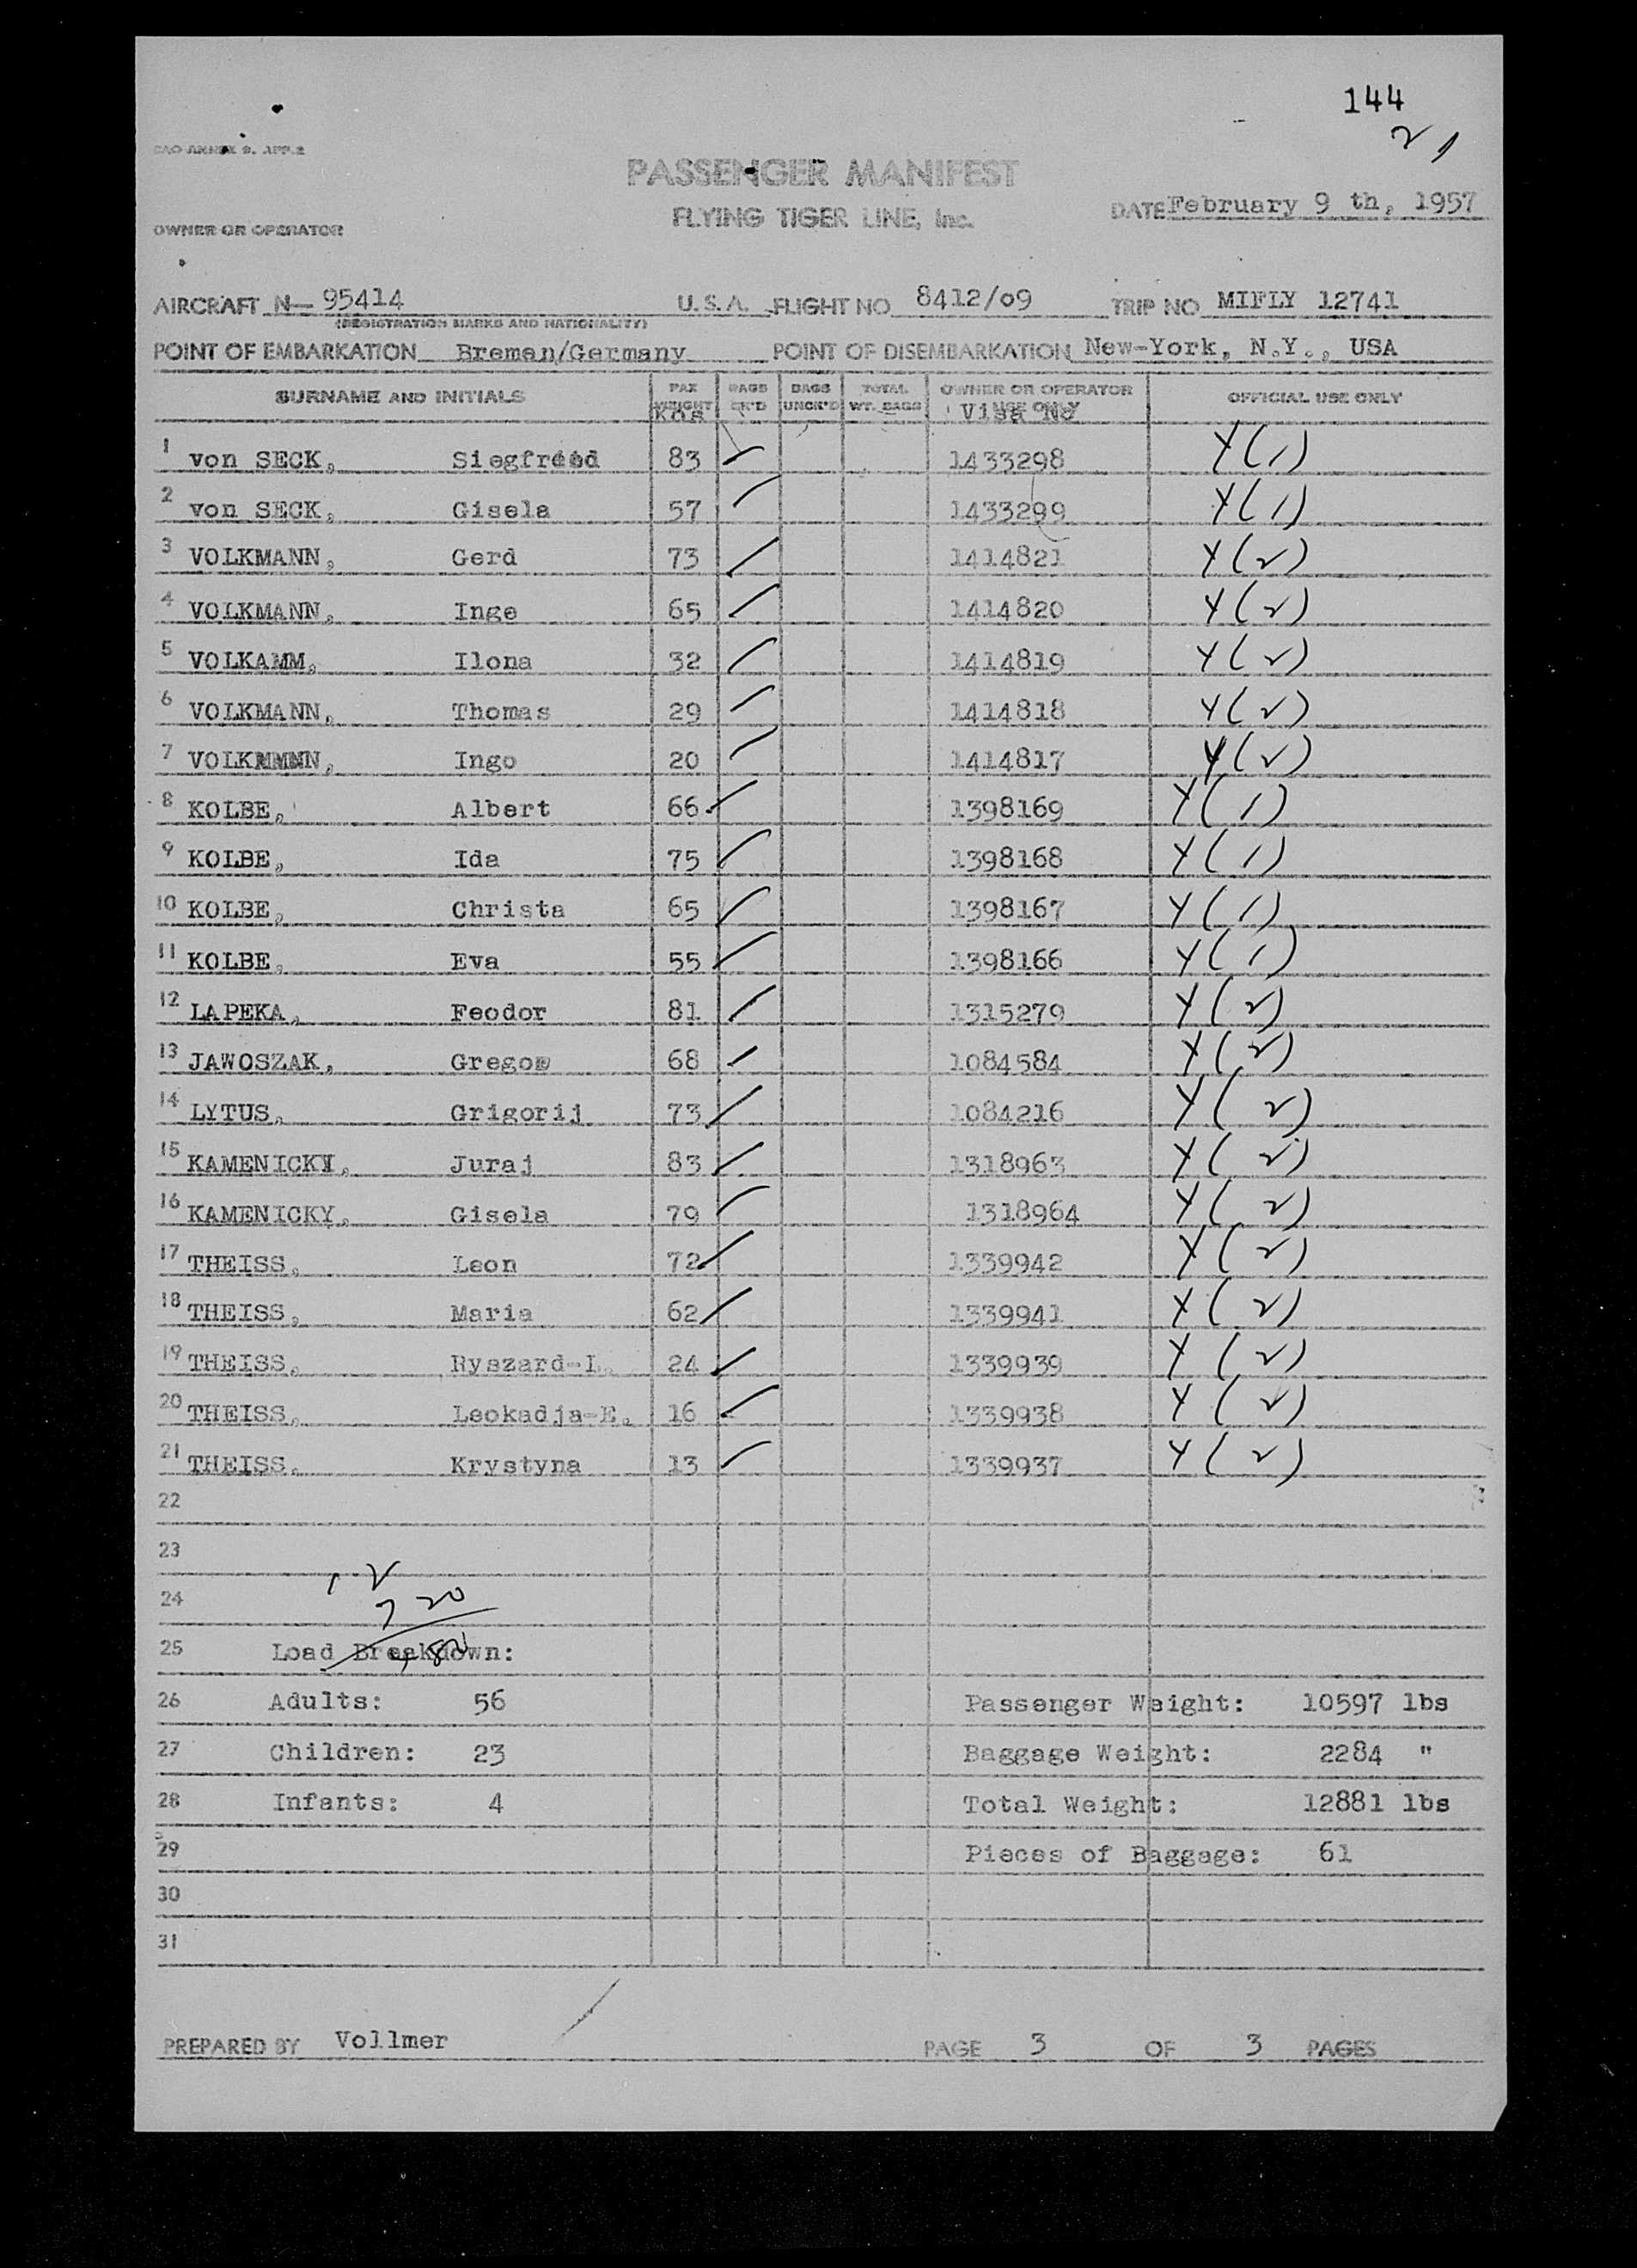 144
2 1
ICAO ANNEX 9, APP.2
PASSENGER MANIFEST
FLYING TIGER LINE, Inc.
DATE February 9 th, 1957
OWNER OR OPERATOR
AIRCRAFT N— 95414 U.S.A. FLIGHT NO 8412/09 TRIP NO MIFLY 12741
(REGISTRATION MARKS AND NATIONALITY)
POINT OF EMBARKATION Bremen/Germany POINT OF DISEMBARKATION New-York, N.Y., USA
SURNAME AND INITIALS PAX WEIGHT Kgs BAGS CK'D BAGS UNCK'D TOTAL WT. BAGS OWNER OR OPERATOR USE ONLY Visa No OFFICIAL USE ONLY
1 von SECK, Siegfried 83 ✓ 1433298 Y(1)
2 von SECK, Gisela 57 ✓ 1433299 Y(1)
3 VOLKMANN, Gerd 73 ✓ 1414821 Y(2)
4 VOLKMANN, Inge 65 ✓ 1414820 Y(2)
5 VOLKAMM, Ilona 32 ✓ 1414819 Y(2)
6 VOLKMANN, Thomas 29 ✓ 1414818 Y(2)
7 VOLKMMNN, Ingo 20 ✓ 1414817 Y(2)
8 KOLBE, Albert 66 ✓ 1398169 Y(1)
9 KOLBE, Ida 75 ✓ 1398168 Y(1)
10 KOLBE, Christa 65 ✓ 1398167 Y(1)
11 KOLBE, Eva 55 ✓ 1398166 Y(1)
12 LAPEKA, Feodor 81 ✓ 1315279 Y(2)
13 JAWOSZAK, Gregor 68 ✓ 1084584 Y(2)
14 LYTUS, Grigorij 73 ✓ 1084216 Y(2)
15 KAMENICKY, Juraj 83 ✓ 1318963 Y(2)
16 KAMENICKY, Gisela 79 ✓ 1318964 Y(2)
17 THEISS, Leon 72 ✓ 1339942 Y(2)
18 THEISS, Maria 62 ✓ 1339941 Y(2)
19 THEISS, Ryszard-L. 24 ✓ 1339939 Y(2)
20 THEISS, Leokadja-E. 16 ✓ 1339938 Y(2)
21 THEISS, Krystyna 13 ✓ 1339937 Y(2)
22
23
1 2
24 7 20
25 Load Breakdown:
26 Adults: 56 Passenger Weight: 10597 lbs
27 Children: 23 Baggage Weight: 2284 "
28 Infants: 4 Total Weight: 12881 lbs
29 Pieces of Baggage: 61
30
31
PREPARED BY Vollmer PAGE 3 OF 3 PAGES